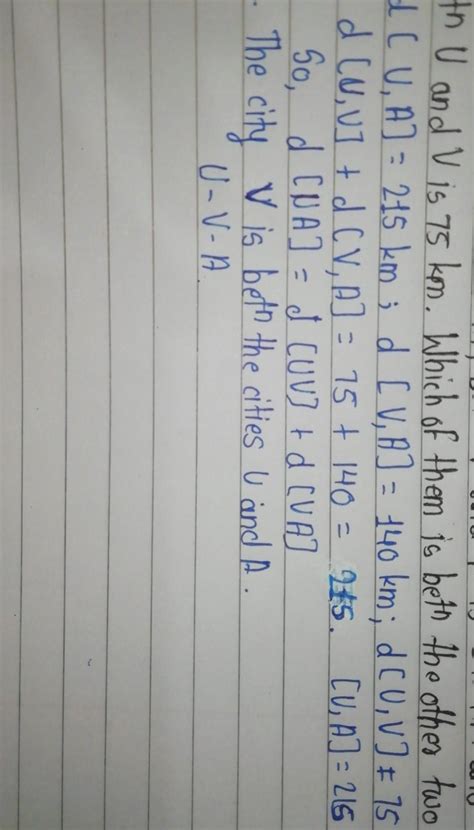 tn U and V is 75 km. Which of them is betn the other two
d[U, A] = 215 km; d[V, A] = 140 km; d[U, V] = 75
d[U,V] + d[V, A] = 75 + 140 = 215. [U, A] = 215
So, d[UA] = d[UV] + d[VA]
The city V is betn the cities U and A.
U - V - A